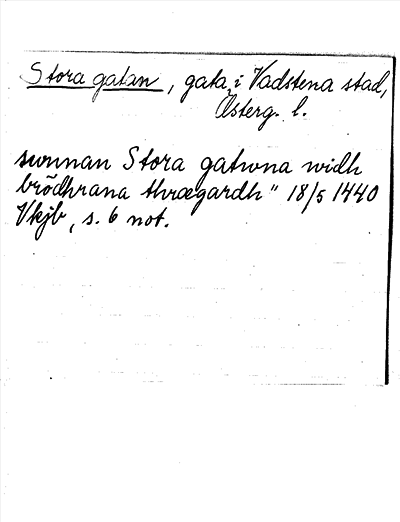 Stora gatan, gata i Vadstena stad,
Österg. l.
sunnan Stora gatuna widh
brödhrana thrægardh" 18/5 1440
Vkjb, s. 6 not.